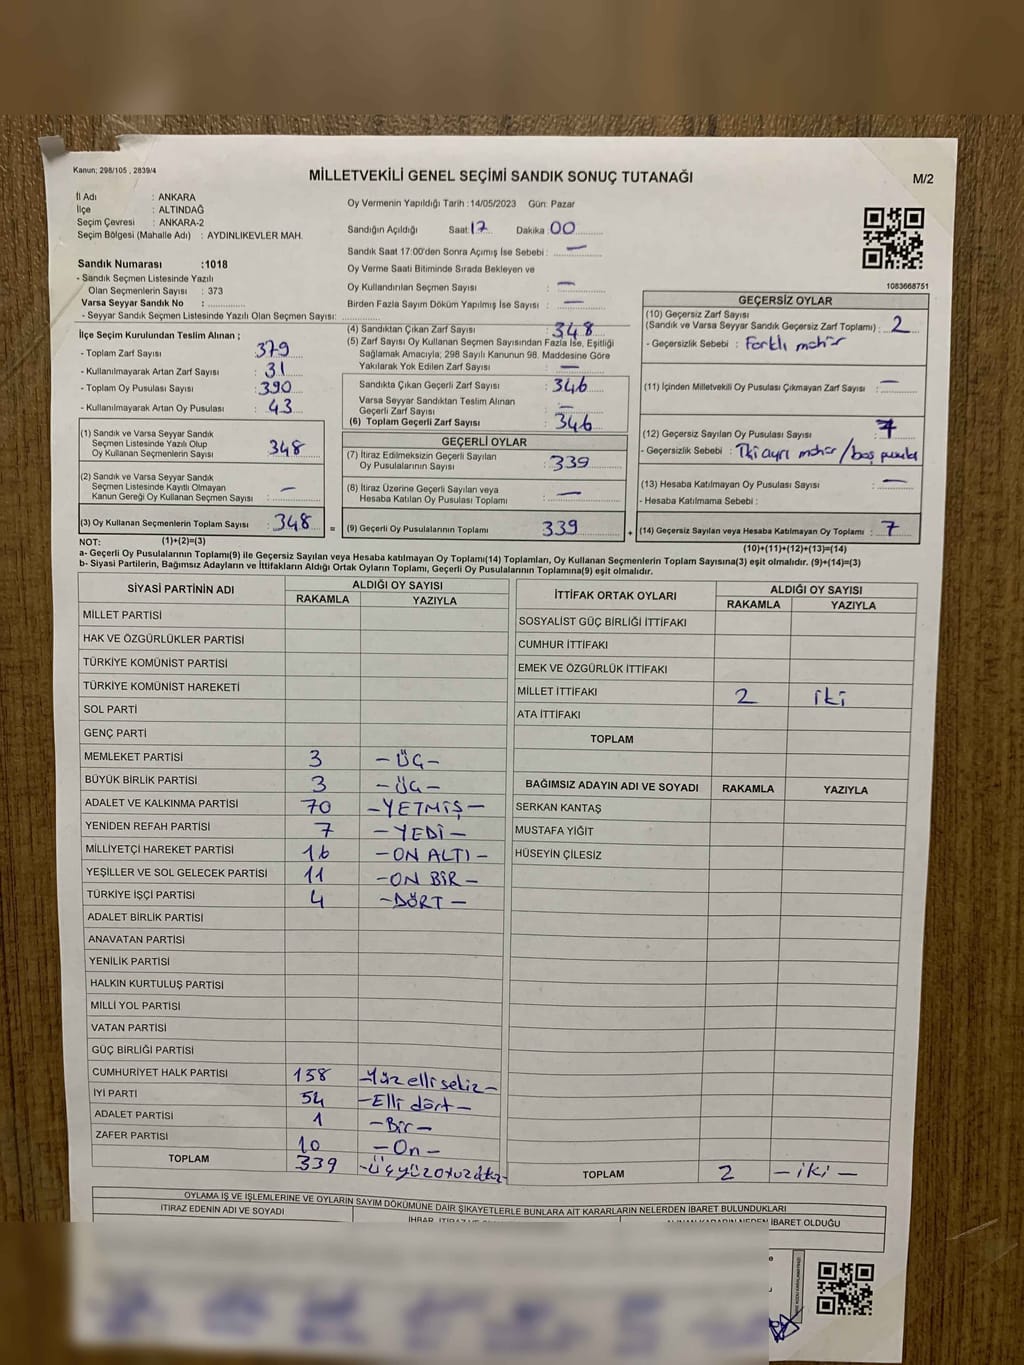 Kanun; 298/105 , 2839/4
MİLLETVEKİLİ GENEL SEÇİMİ SANDIK SONUÇ TUTANAĞI
M/2
İl Adı : ANKARA
İlçe : ALTINDAĞ
Seçim Çevresi : ANKARA-2
Seçim Bölgesi (Mahalle Adı) : AYDINLIKEVLER MAH.
Sandık Numarası :1018
- Sandık Seçmen Listesinde Yazılı
Olan Seçmenlerin Sayısı : 373
Varsa Seyyar Sandık No :
- Seyyar Sandık Seçmen Listesinde Yazılı Olan Seçmen Sayısı:
Oy Vermenin Yapıldığı Tarih :14/05/2023 Gün: Pazar
Sandığın Açıldığı Saat: 17 Dakika 00
Sandık Saat 17:00'den Sonra Açımış İse Sebebi : —
Oy Verme Saati Bitiminde Sırada Bekleyen ve
Oy Kullandırılan Seçmen Sayısı : —
Birden Fazla Sayım Döküm Yapılmış İse Sayısı : —
1083668751
İlçe Seçim Kurulundan Teslim Alınan ;
- Toplam Zarf Sayısı : 379
- Kullanılmayarak Artan Zarf Sayısı : 31
- Toplam Oy Pusulası Sayısı : 390
- Kullanılmayarak Artan Oy Pusulası : 43
(1) Sandık ve Varsa Seyyar Sandık
Seçmen Listesinde Yazılı Olup
Oy Kullanan Seçmenlerin Sayısı : 348
(2) Sandık ve Varsa Seyyar Sandık
Seçmen Listesinde Kayıtlı Olmayan
Kanun Gereği Oy Kullanan Seçmen Sayısı : —
(3) Oy Kullanan Seçmenlerin Toplam Sayısı : 348 =
(4) Sandıktan Çıkan Zarf Sayısı : 348
(5) Zarf Sayısı Oy Kullanan Seçmen Sayısından Fazla İse, Eşitliği
Sağlamak Amacıyla; 298 Sayılı Kanunun 98. Maddesine Göre
Yakılarak Yok Edilen Zarf Sayısı : —
Sandıkta Çıkan Geçerli Zarf Sayısı : 346
Varsa Seyyar Sandıktan Teslim Alınan
Geçerli Zarf Sayısı : —
(6) Toplam Geçerli Zarf Sayısı : 346
GEÇERLİ OYLAR
(7) İtiraz Edilmeksizin Geçerli Sayılan
Oy Pusulalarının Sayısı : 339
(8) İtiraz Üzerine Geçerli Sayılan veya
Hesaba Katılan Oy Pusulası Toplamı : —
(9) Geçerli Oy Pusulalarının Toplamı 339 +
GEÇERSİZ OYLAR
(10) Geçersiz Zarf Sayısı
(Sandık ve Varsa Seyyar Sandık Geçersiz Zarf Toplamı) : 2
- Geçersizlik Sebebi : Farklı mühür
(11) İçinden Milletvekili Oy Pusulası Çıkmayan Zarf Sayısı : —
(12) Geçersiz Sayılan Oy Pusulası Sayısı : 7
- Geçersizlik Sebebi : İki ayrı mühür / boş pusula
(13) Hesaba Katılmayan Oy Pusulası Sayısı : —
- Hesaba Katılmama Sebebi :
(14) Geçersiz Sayılan veya Hesaba Katılmayan Oy Toplamı : 7
NOT: (1)+(2)=(3) (10)+(11)+(12)+(13)=(14)
a- Geçerli Oy Pusulalarının Toplamı(9) ile Geçersiz Sayılan veya Hesaba katılmayan Oy Toplamı(14) Toplamları, Oy Kullanan Seçmenlerin Toplam Sayısına(3) eşit olmalıdır. (9)+(14)=(3)
b- Siyasi Partilerin, Bağımsız Adayların ve İttifakların Aldığı Ortak Oyların Toplamı, Geçerli Oy Pusulalarının Toplamına(9) eşit olmalıdır.
SİYASİ PARTİNİN ADI ALDIĞI OY SAYISI
RAKAMLA YAZIYLA
MİLLET PARTİSİ
HAK VE ÖZGÜRLÜKLER PARTİSİ
TÜRKİYE KOMÜNİST PARTİSİ
TÜRKİYE KOMÜNİST HAREKETİ
SOL PARTİ
GENÇ PARTİ
MEMLEKET PARTİSİ 3 -ÜÇ-
BÜYÜK BİRLİK PARTİSİ 3 -ÜÇ-
ADALET VE KALKINMA PARTİSİ 70 -YETMİŞ-
YENİDEN REFAH PARTİSİ 7 -YEDİ-
MİLLİYETÇİ HAREKET PARTİSİ 16 -ON ALTI-
YEŞİLLER VE SOL GELECEK PARTİSİ 11 -ON BİR-
TÜRKİYE İŞÇİ PARTİSİ 4 -DÖRT-
ADALET BİRLİK PARTİSİ
ANAVATAN PARTİSİ
YENİLİK PARTİSİ
HALKIN KURTULUŞ PARTİSİ
MİLLİ YOL PARTİSİ
VATAN PARTİSİ
GÜÇ BİRLİĞİ PARTİSİ
CUMHURİYET HALK PARTİSİ 158 -Yüz elli sekiz-
İYİ PARTİ 54 -Elli dört-
ADALET PARTİSİ 1 -Bir-
ZAFER PARTİSİ 10 -On-
TOPLAM 339 -Üçyüzotuzdokuz-
İTTİFAK ORTAK OYLARI ALDIĞI OY SAYISI
RAKAMLA YAZIYLA
SOSYALİST GÜÇ BİRLİĞİ İTTİFAKI
CUMHUR İTTİFAKI
EMEK VE ÖZGÜRLÜK İTTİFAKI
MİLLET İTTİFAKI 2 iki
ATA İTTİFAKI
TOPLAM
BAĞIMSIZ ADAYIN ADI VE SOYADI RAKAMLA YAZIYLA
SERKAN KANTAŞ
MUSTAFA YİĞİT
HÜSEYİN ÇİLESİZ
TOPLAM 2 -iki-
OYLAMA İŞ VE İŞLEMLERİNE VE OYLARIN SAYIM DÖKÜMÜNE DAİR ŞİKAYETLERLE BUNLARA AİT KARARLARIN NELERDEN İBARET BULUNDUKLARI
İTİRAZ EDENİN ADI VE SOYADI
İBARET OLDUĞU